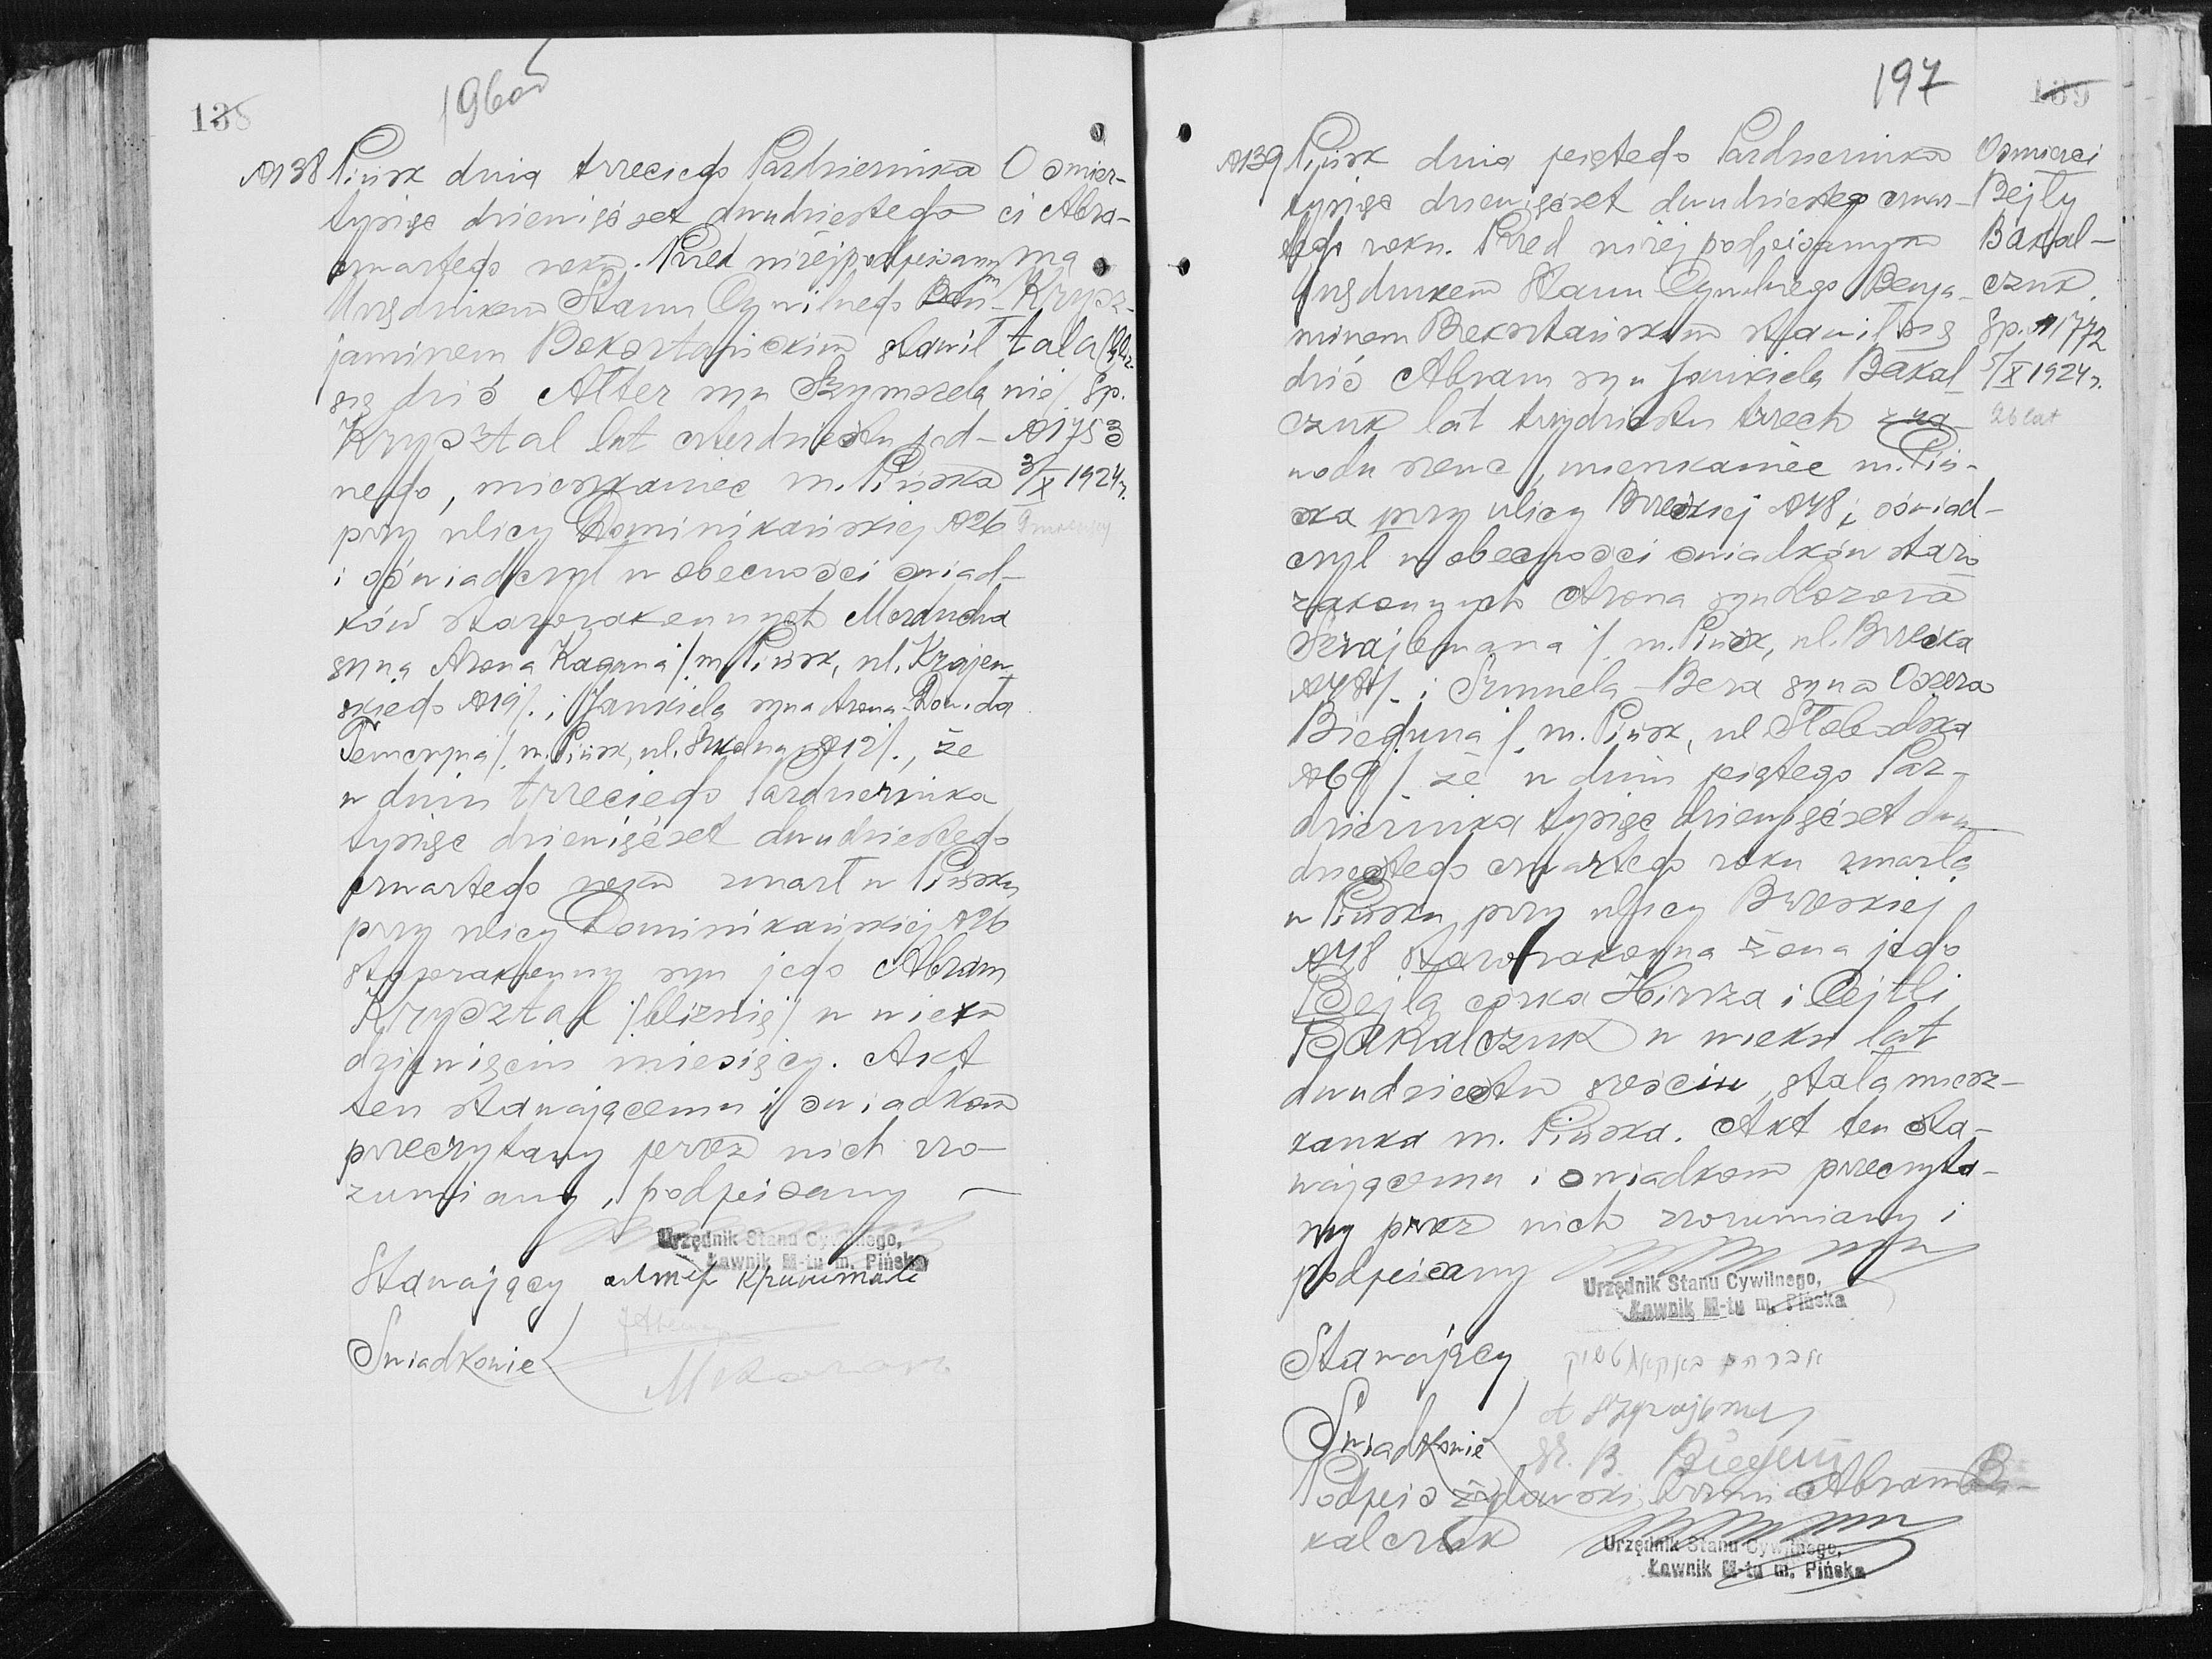 138
196 od
№138 Pińsk dnia trzeciego Października
tysiąc dziewięćset dwudziestego
czwartego roku. Przed niżej podpisanym
Urzędnikiem Stanu Cywilnego Ben-
jaminem Boksztańskim stawił
się dziś Alter syn Szymszela
Krysztal lat czterdziestu jed-
nego, mieszkaniec m. Pińska
przy ulicy Dominikańskiej №26
i oświadczył w obecności świad-
ków starozakonnych Morducha
syna Arona Kagana /m. Pińsk, ul. Krajew
skiego №19/. i Jankiela syna Arona-Dowida
Temczyna /. m. Pińsk, ul. Szkolna №12/., że
w dniu trzeciego Października
tysiąc dziewięćset dwudziestego
czwartego roku zmarł w Pińsku
przy ulicy Dominikańskiej №26
starozakonny syn jego Abram
Krysztal /bliźnię/ w wieku
dziewięciu miesięcy. Akt
ten stawającemu i świadkom
przeczytany przez nich zro-
zumiany i podpisany —
O śmier-
ci Abra-
ma
Krysz-
tala (bliź-
nię) Sp.
№1753
3/X 1924 r.
9 miesięcy
Urzędnik Stanu Cywilnego,
Ławnik M-tu m. Pińska
Stawający
Świadkowie
197
139
№139 Pińsk dnia piątego Października
tysiąc dziewięćset dwudziestego czwar-
tego roku. Przed niżej podpisanym
Urzędnikiem Stanu Cywilnego Benja-
minem Boksztańskim stawił się
dziś Abram syn Jankiela Bakal
czuk lat trzydziestu trzech za-
wodu szewc, mieszkaniec m. Piń-
ska przy ulicy Brzeskiej №48 i oświad-
czył w obecności świadków staro
zakonnych Arona syna Lozora
Szrajbmana /. m. Pińsk, ul. Brzeska
№48/. i Szmuela-Bera syna Osera
Bieguna /. m. Pińsk, ul Słobodska
№69/. że w dniu piątego Paź-
dziernika tysiąc dziewięćset dwu
dziestego czwartego roku zmarła
w Pińsku przy ulicy Brzeskiej
№48 starozakonna żona jego
Bejla córka Hirsza i Cejtli
Bakalczuk w wieku lat
dwudziestu sześciu, stała miesz-
kanka m. Pińska. Akt ten sta-
wającemu i świadkom przeczyta-
ny przez nich zrozumiany i
podpisany
O śmierci
Bejły
Bakal-
czuk.
Sp. №1772
5/X 1924 r.
26 lat
Urzędnik Stanu Cywilnego,
Ławnik M-tu m. Pińska
Stawający
Świadkowie
A Szrajbman
Sz. B. Biegun
Podpis żydowski brzmi Abram Ba-
kalczuk
Urzędnik Stanu Cywilnego,
Ławnik M-tu m. Pińska